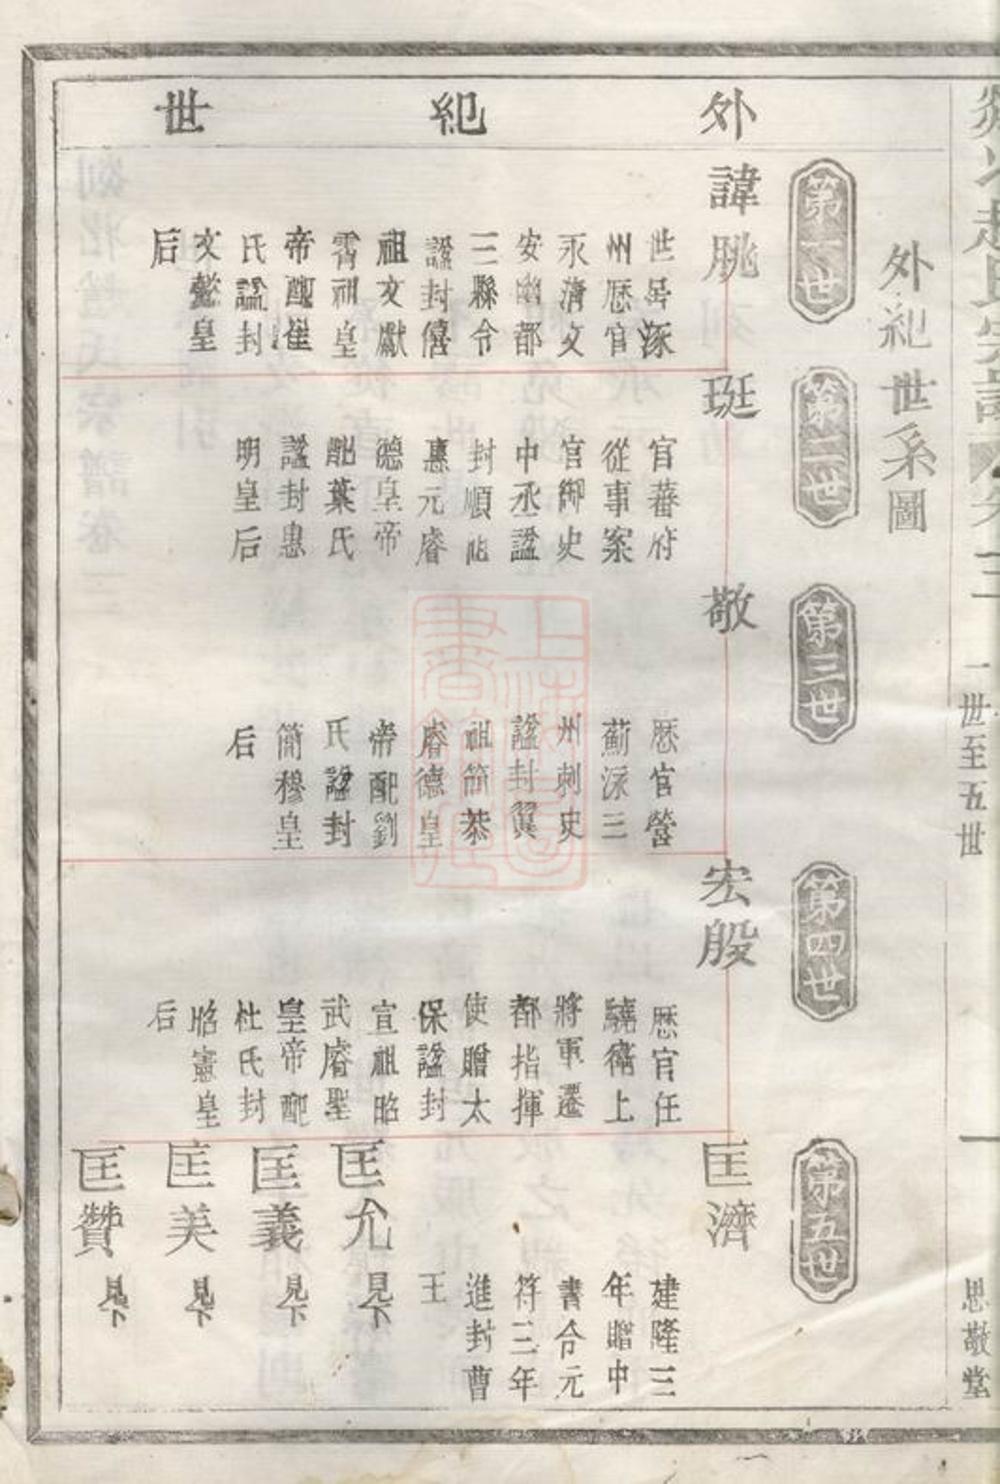 外紀世
外紀世系圖
第一世
諱朓
世居涿
州歷官
永清文
安幽都
三縣令
諡封僖
祖文獻
睿祖皇
帝配崔
氏諡封
文懿皇
后
第二世
珽
官藩府
從事案
官御史
中丞諡
封順祖
惠元睿
德皇帝
配葉氏
諡封惠
明皇后
第三世
敬
歷官營
薊涿三
州刺史
諡封翼
祖簡恭
睿德皇
帝配劉
氏諡封
簡穆皇
后
第四世
宏殷
歷官任
驍衛上
將軍遷
都指揮
使贈太
保諡封
宣祖昭
武睿聖
皇帝配
杜氏封
昭憲皇
后
第五世
匡濟
建隆三
年贈中
書令元
符三年
進封曹
王
匡允 見下
匡義 見下
匡美 見下
匡贊 見下
一世至五世
一
思敬堂